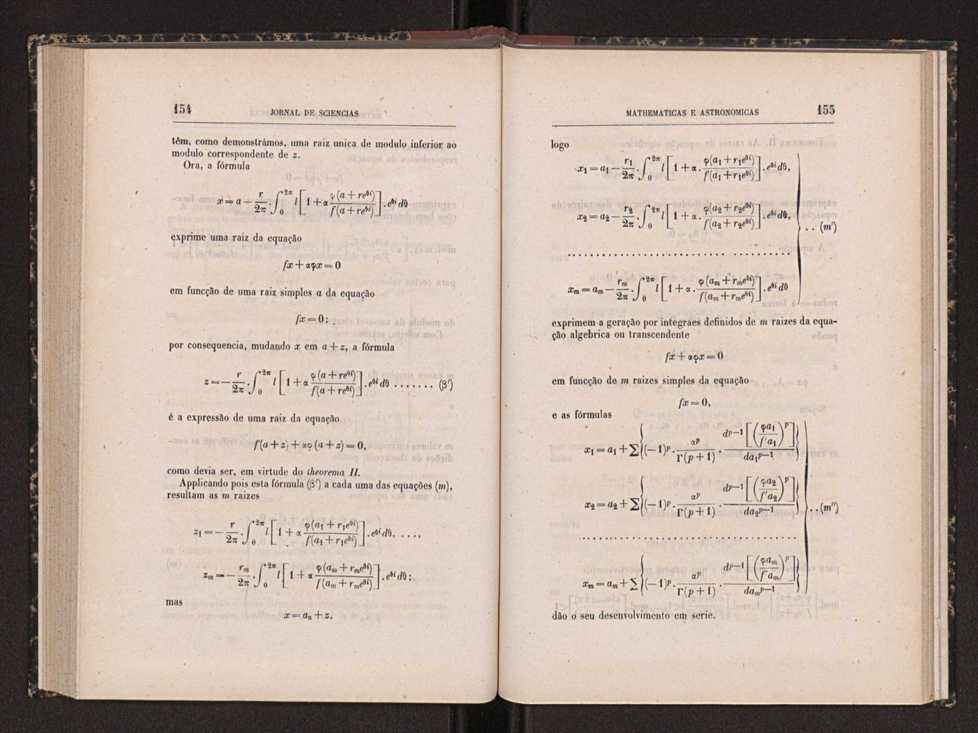 154
JORNAL DE SCIENCIAS
têm, como demonstrámos, uma raiz unica de modulo inferior ao
modulo correspondente de z.
Ora, a fórmula
x = a − r/2π . ∫₀^2π l [1 + α φ(a + re^θi)/f(a + re^θi)] . e^θi dθ
exprime uma raiz da equação
fx + αφx = 0
em funcção de uma raiz simples a da equação
fx = 0;
por consequencia, mudando x em a + z, a fórmula
z = − r/2π . ∫₀^2π l [1 + α φ(a + re^θi)/f(a + re^θi)] . e^θi dθ ....... (β')
é a expressão de uma raiz da equação
f(a + z) + αφ (a + z) = 0,
como devia ser, em virtude do theorema II.
Applicando pois esta fórmula (β') a cada uma das equações (m),
resultam as m raizes
z₁ = − r/2π . ∫₀^2π l [1 + α φ(a₁ + r₁e^θi)/f(a₁ + r₁e^θi)] . e^θi dθ, ....,
zₘ = − rₘ/2π . ∫₀^2π l [1 + α φ(aₘ + rₘe^θi)/f(aₘ + rₘe^θi)] . e^θi dθ;
mas
x = aₙ + z,
MATHEMATICAS E ASTRONOMICAS
155
logo
x₁ = a₁ − r₁/2π . ∫₀^2π l [1 + α . φ(a₁ + r₁e^θi)/f(a₁ + r₁e^θi)] . e^θi dθ,
x₂ = a₂ − r₂/2π . ∫₀^2π l [1 + α . φ(a₂ + r₂e^θi)/f(a₂ + r₂e^θi)] . e^θi dθ, .. (m')
xₘ = aₘ − rₘ/2π . ∫₀^2π l [1 + α . φ(aₘ + rₘe^θi)/f(aₘ + rₘe^θi)] . e^θi dθ
exprimem a geração por integraes definidos de m raizes da equa-
ção algebrica ou transcendente
fx + αφx = 0
em funcção de m raizes simples da equação
fx = 0,
e as fórmulas
x₁ = a₁ + Σ {(−1)^p . α^p/Γ(p + 1) . d^p−1 [(φa₁/f'a₁)^p]/da₁^p−1}
x₂ = a₂ + Σ {(−1)^p . α^p/Γ(p + 1) . d^p−1 [(φa₂/f'a₂)^p]/da₂^p−1} .. (m'')
xₘ = aₘ + Σ {(−1)^p . α^p/Γ(p + 1) . d^p−1 [(φaₘ/f'aₘ)^p]/daₘ^p−1}
dão o seu desenvolvimento em serie.